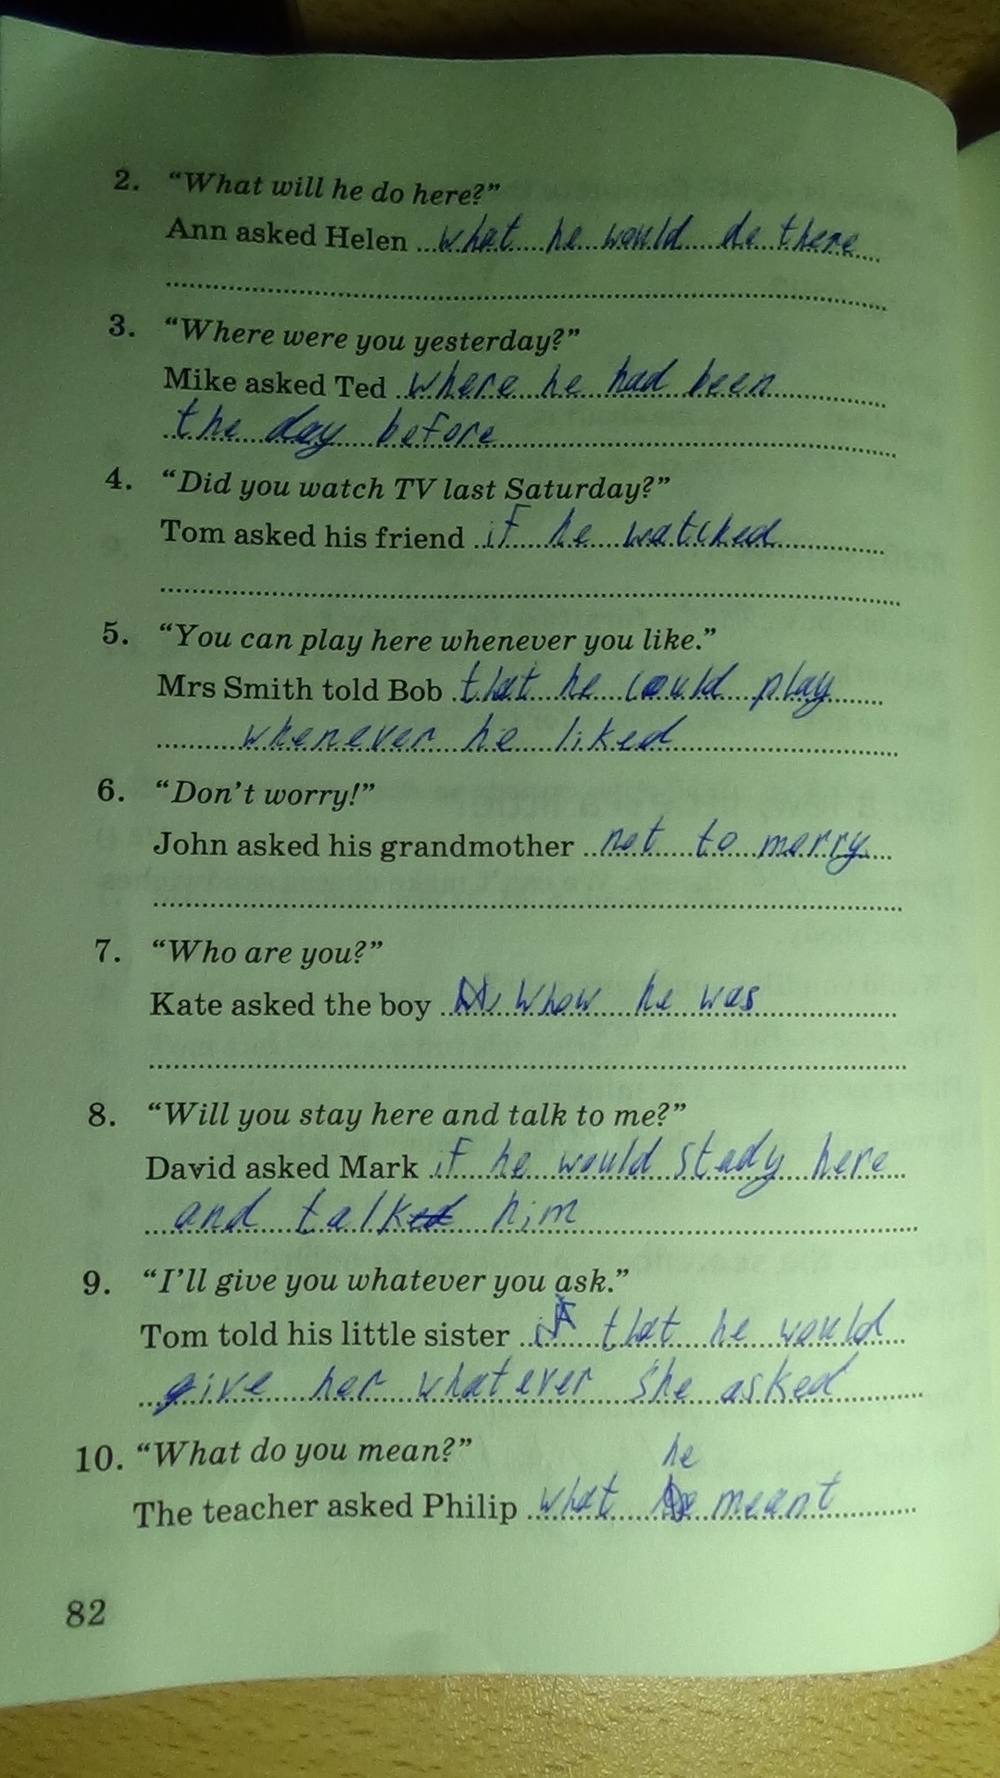 2. “What will he do here?”
Ann asked Helen what he would do there
3. “Where were you yesterday?”
Mike asked Ted where he had been
the day before
4. “Did you watch TV last Saturday?”
Tom asked his friend if he watched
5. “You can play here whenever you like.”
Mrs Smith told Bob that he could play
whenever he liked
6. “Don’t worry!”
John asked his grandmother not to morry
7. “Who are you?”
Kate asked the boy Whow he was
8. “Will you stay here and talk to me?”
David asked Mark if he would stady here
and talk him
9. “I’ll give you whatever you ask.”
Tom told his little sister that he would
give her whatever she asked
10. “What do you mean?”
he
The teacher asked Philip what meant
82